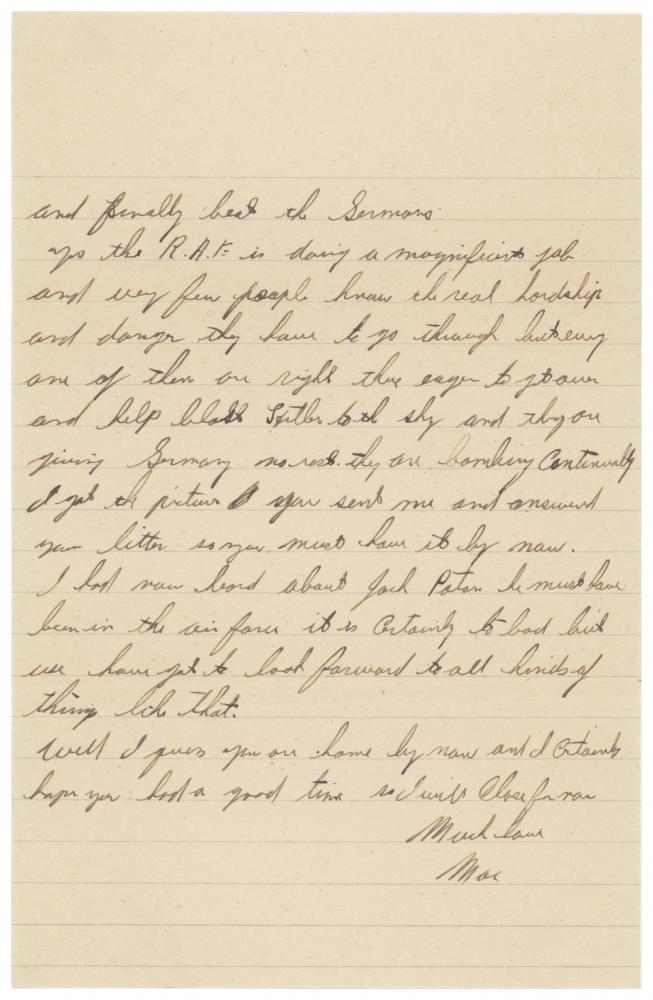 and finally beat the Germans.
yes the R.A.F. is doing a magnificent job
and very few people know the real hardship
and danger they have to go through but every
one of them are right there eager to go over
and help blast Hitler to the sky and they are
giving Germany no rest. they are bombing Continually
I got the picture you sent me and answered
your letter so you must have it by now.
I had now heard about Jack Paton he must have
been in the air force it is Certainly to bad but
we have got to look forward to all kinds of
things like that.
Well I guess you are home by now and I Certainly
hope you had a good time so I will Close for now
Much love
Mac